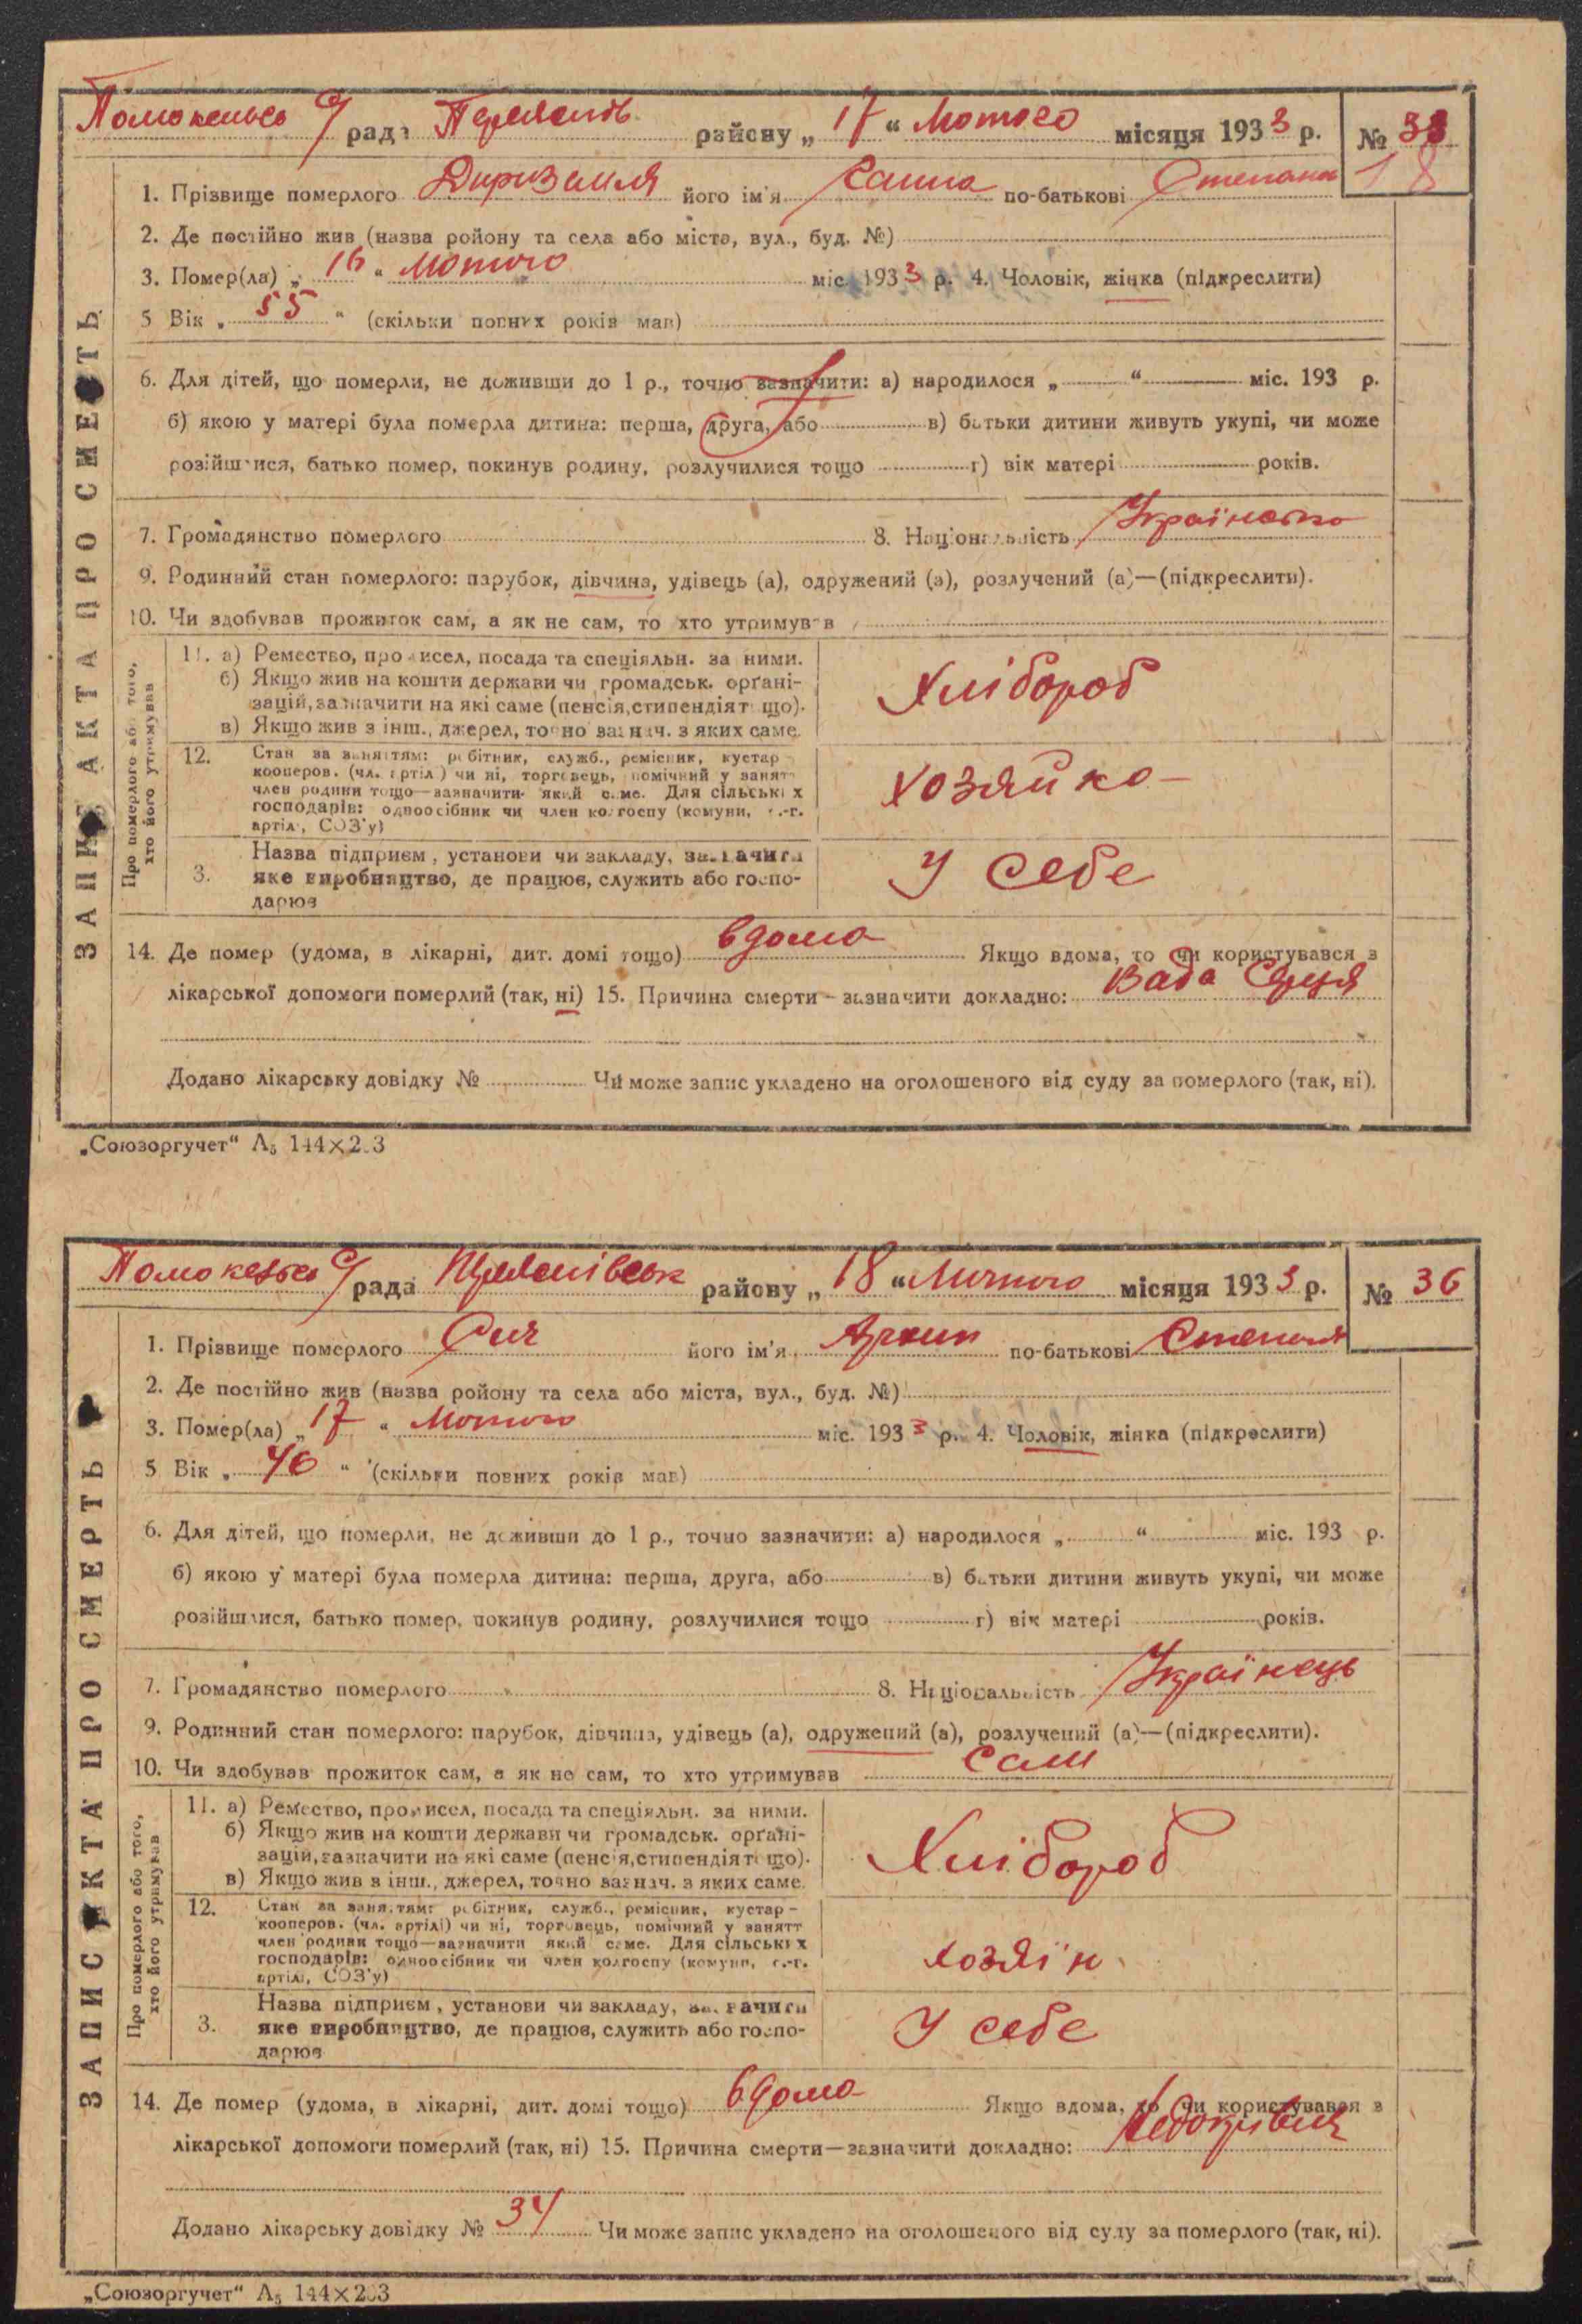 Помокельсь с/рада Переяслів району „ 17 “ Лютого місяця 1933 р. № 33
18
1. Прізвище померлого Дириземля його ім'я Ганна по-батькові Степана
2. Де постійно жив (назва ройону та села або міста, вул., буд. №)
3. Помер(ла) „ 16 “ Лютого міс. 1933 р. 4. Чоловік, жінка (підкреслити)
5 Вік „ 55 “ (скільки повних років мав)
6. Для дітей, що померли, не доживши до 1 р., точно зазначити: а) народилося „ “ міс. 193 р.
б) якою у матері була померла дитина: перша, друга, або в) батьки дитини живуть укупі, чи може
розійшлися, батько помер, покинув родину, розлучилися тощо г) вік матері років.
7. Громадянство померлого 8. Національність Українка
9. Родинний стан померлого: парубок, дівчина, удівець (а), одружений (а), розлучений (а)—(підкреслити).
10. Чи здобував прожиток сам, а як не сам, то хто утримував
ЗАПИС АКТА ПРО СМЕРТЬ
Про померлого або того, хто його утримував
11. а) Ремество, промисел, посада та спеціяльн. за ними.
б) Якщо жив на кошти держави чи громадськ. орґані-
зацій, зазначити на які саме (пенсія, стипендія тощо).
в) Якщо жив з інш., джерел, точно зазнач. з яких саме.
Хлібороб
12. Стан за заняттям: робітник, служб., ремісник, кустар -
кооперов. (чл. артілі) чи ні, торговець, помічний у занятт
член родини тощо—зазначити який саме. Для сільських
господарів: одноосібник чи член колгоспу (комуни, с.-г.
артілі, СОЗ'у)
хозяйка
3. Назва підприєм, установи чи закладу, зазначити
яке виробництво, де працює, служить або госпо-
дарює
У себе
14. Де помер (удома, в лікарні, дит. домі тощо) вдома Якщо вдома, то чи користувався з
лікарської допомоги померлий (так, ні) 15. Причина смерти—зазначити докладно: Вада серця
Додано лікарську довідку № Чи може запис укладено на оголошеного від суду за померлого (так, ні).
„Союзоргучет“ А₅ 144×203
Помокельсь с/рада Переяслівськ району „ 18 “ Лютого місяця 1933 р. № 36
1. Прізвище померлого Сич його ім'я Архип по-батькові Степанов
2. Де постійно жив (назва ройону та села або міста, вул., буд. №)
3. Помер(ла) „ 17 “ Лютого міс. 1933 р. 4. Чоловік, жінка (підкреслити)
5 Вік „ 46 “ (скільки повних років мав)
6. Для дітей, що померли, не доживши до 1 р., точно зазначити: а) народилося „ “ міс. 193 р.
б) якою у матері була померла дитина: перша, друга, або в) батьки дитини живуть укупі, чи може
розійшлися, батько помер, покинув родину, розлучилися тощо г) вік матері років.
7. Громадянство померлого 8. Національність Українець
9. Родинний стан померлого: парубок, дівчина, удівець (а), одружений (а), розлучений (а)—(підкреслити).
10. Чи здобував прожиток сам, а як не сам, то хто утримував Сам
ЗАПИС АКТА ПРО СМЕРТЬ
Про померлого або того, хто його утримував
11. а) Ремество, промисел, посада та спеціяльн. за ними.
б) Якщо жив на кошти держави чи громадськ. орґані-
зацій, зазначити на які саме (пенсія, стипендія тощо).
в) Якщо жив з інш., джерел, точно зазнач. з яких саме.
Хлібороб
12. Стан за заняттям: робітник, служб., ремісник, кустар -
кооперов. (чл. артілі) чи ні, торговець, помічний у занятт
член родини тощо—зазначити який саме. Для сільських
господарів: одноосібник чи член колгоспу (комуни, с.-г.
артілі, СОЗ'у)
хозяїн
3. Назва підприєм, установи чи закладу, зазначити
яке виробництво, де працює, служить або госпо-
дарює
У себе
14. Де помер (удома, в лікарні, дит. домі тощо) вдома Якщо вдома, то чи користувався з
лікарської допомоги померлий (так, ні) 15. Причина смерти—зазначити докладно: Недокрівля
Додано лікарську довідку № 34 Чи може запис укладено на оголошеного від суду за померлого (так, ні).
„Союзоргучет“ А₅ 144×203